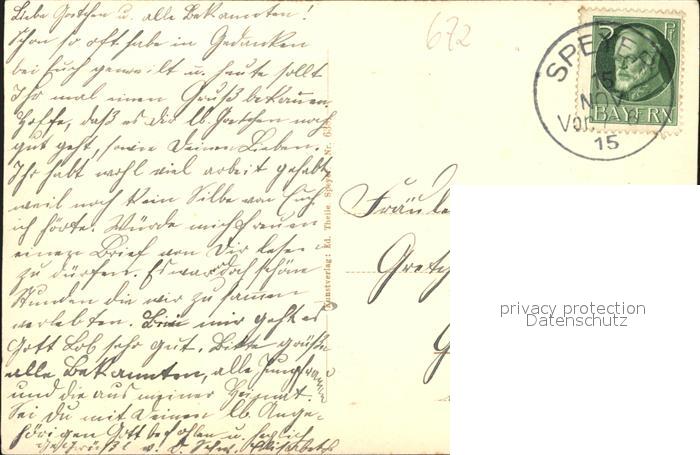 Liebe Gretchen u. alle Bekannten!
Schon so oft habe in Gedanken
bei Euch geweilt u. heute sollt
Ihr mal einen Gruß bekommen.
Hoffe, daß es Dir lb. Gretchen noch
gut geht, sowie Deinen Lieben.
Ihr habt wohl viel arbeit gehabt
weil noch kein Silbe von Euch
ich hörte. Würde mich freuen
einen Brief von Dir lesen
zu dürfen. Es war doch schöne
Stunden die wir zusammen
verlebten. Bei mir geht es
Gott Lob sehr gut. Bitte grüße
alle Bekannten, alle Jungfrauen
und die aus meiner Heimat.
Sei du mit Deinen lb. Ange-
hörigen Gott befohlen u. herzlich
gegrüßt v. D. Schw. Elisabeth
Kunstverlag: Ed. Theile Speyer Nr. 63
672
SPEYER
15
NOV
Vorm
15
5 Pf
BAYERN
Fräule
Gretch
G
privacy protection
Datenschutz